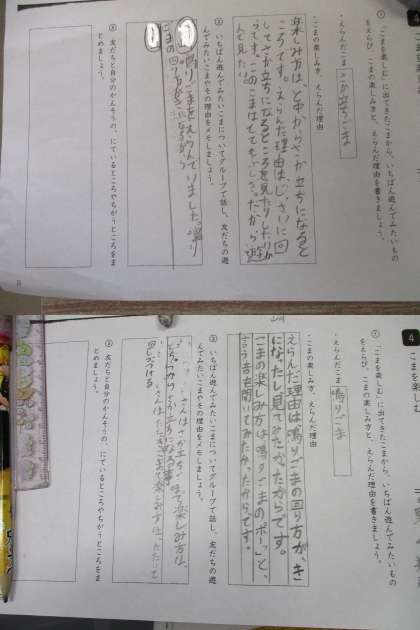 4
① 「こまを楽しむ」に出てきたこまから、いちばん遊んでみたいもの
をえらび、こまの楽しみ方と、えらんだ理由を書きましょう。
・えらんだこま
さか立ちごま
・こまの楽しみ方、えらんだ理由
楽しみ方は、と中からさか立ちになると
ころです。えらんだ理由は、じっさいに回
してさか立ちになるところを見たりしたいか
らです。このこまはとてもふしぎ。だから遊
んで見たい。
② いちばん遊んでみたいこまについてグループで話し、友だちの遊
んでみたいこまやその理由をメモしましょう。
鳴りごまをえらんでいました。鳴り
ごまの回り方が
③ 友だちと自分のかんそうの、にているところやちがうところをま
とめましょう。
4
こまを楽しむ
① 「こまを楽しむ」に出てきたこまから、いちばん遊んでみたいもの
をえらび、こまの楽しみ方と、えらんだ理由を書きましょう。
・えらんだこま
鳴りごま
・こまの楽しみ方、えらんだ理由
えらんだ理由は鳴りごまの回り方が、き
になったし見てみたかったからです。
こまの楽しみ方は鳴りごまのボーッと、
言う音を聞いてみたかったからです。
② いちばん遊んでみたいこまについてグループで話し、友だちの遊
んでみたいこまやその理由をメモしましょう。
さんはさか立ちごまで楽しみ方は、
とちゅうからさか立ちになる
さんはたたきごまで楽しみ方は、たたいて
回しつづける
③ 友だちと自分のかんそうの、にているところやちがうところをま
とめましょう。